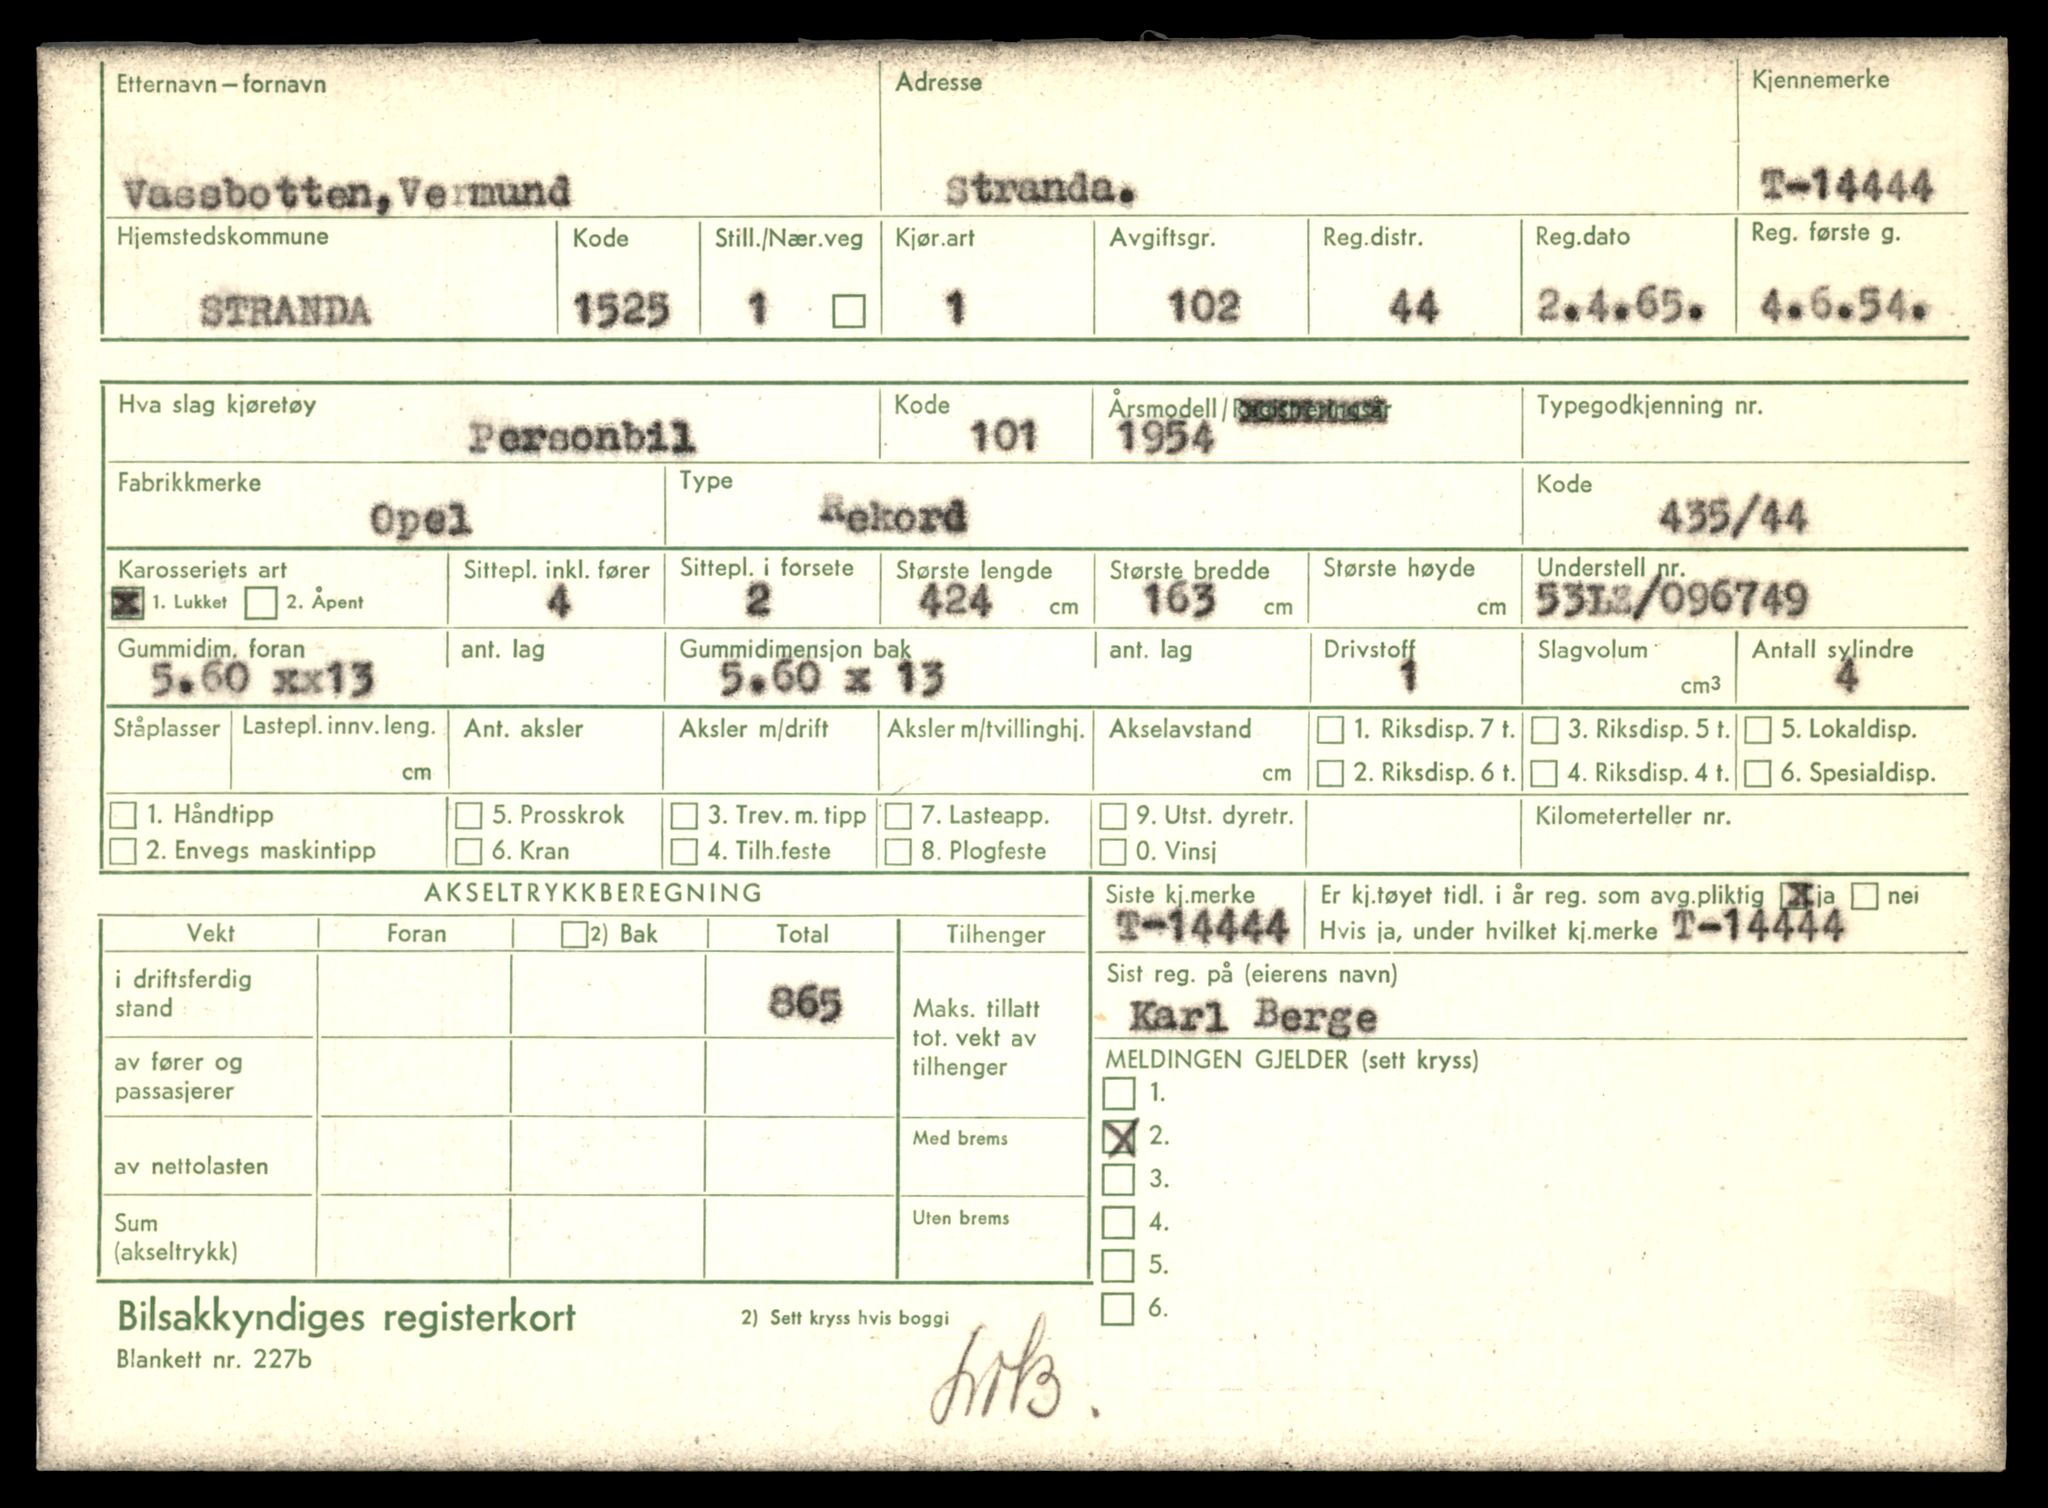 Etternavn – fornavn Adresse Kjennemerke
Vassbotten, Vermund Stranda. T-14444
Hjemstedskommune Kode Still./Nær.veg Kjør.art Avgiftsgr. Reg.distr. Reg.dato Reg. første g.
STRANDA 1525 1 1 102 44 2.4.65. 4.6.54.
Hva slag kjøretøy Kode Årsmodell / Registreringsår Typegodkjenning nr.
Personbil 101 1954
Fabrikkmerke Type Kode
Opel Rekord 435/44
Karosseriets art Sittepl. inkl. fører Sittepl. i forsete Største lengde Største bredde Største høyde Understell nr.
X 1. Lukket 2. Åpent 4 2 424 cm 163 cm cm 53LZ/096749
Gummidim. foran ant. lag Gummidimensjon bak ant. lag Drivstoff Slagvolum Antall sylindre
5.60 xx13 5.60 x 13 1 cm3 4
Ståplasser Lastepl. innv. leng. Ant. aksler Aksler m/drift Aksler m/tvillinghj. Akselavstand 1. Riksdisp. 7 t. 3. Riksdisp. 5 t. 5. Lokaldisp.
cm cm 2. Riksdisp. 6 t. 4. Riksdisp. 4 t. 6. Spesialdisp.
1. Håndtipp 5. Prosskrok 3. Trev. m. tipp 7. Lasteapp. 9. Utst. dyretr. Kilometerteller nr.
2. Envegs maskintipp 6. Kran 4. Tilh.feste 8. Plogfeste 0. Vinsj
AKSELTRYKKBEREGNING Siste kj.merke Er kj.tøyet tidl. i år reg. som avg.pliktig X ja nei
T-14444 Hvis ja, under hvilket kj.merke T-14444
Vekt Foran 2) Bak Total Tilhenger
i driftsferdig stand 865
Maks. tillatt tot. vekt av tilhenger
Sist reg. på (eierens navn)
Karl Berge
av fører og passasjerer
MELDINGEN GJELDER (sett kryss)
1.
X 2.
3.
4.
5.
6.
av nettolasten Med brems
Sum (akseltrykk) Uten brems
Bilsakkyndiges registerkort 2) Sett kryss hvis boggi
Blankett nr. 227b